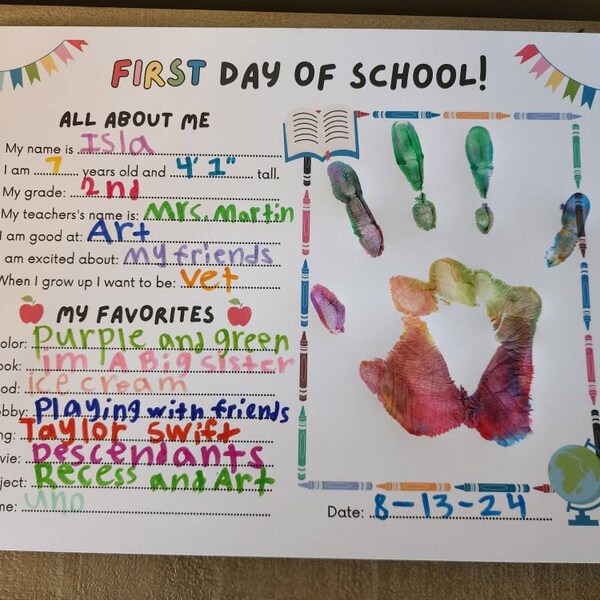 FIRST DAY OF SCHOOL!
ALL ABOUT ME
My name is Isla
I am 7 years old and 4' 1" tall.
My grade: 2nd
My teachers's name is: Mrs. Martin
I am good at: Art
am excited about: my friends
When I grow up I want to be: vet
MY FAVORITES
olor: Purple and green
ook: im A Big sister
od: ice cream
obby: Playing with friends
ng: Taylor swift
vie: Descendants
ject: Recess and Art
me: uno
Date: 8-13-24